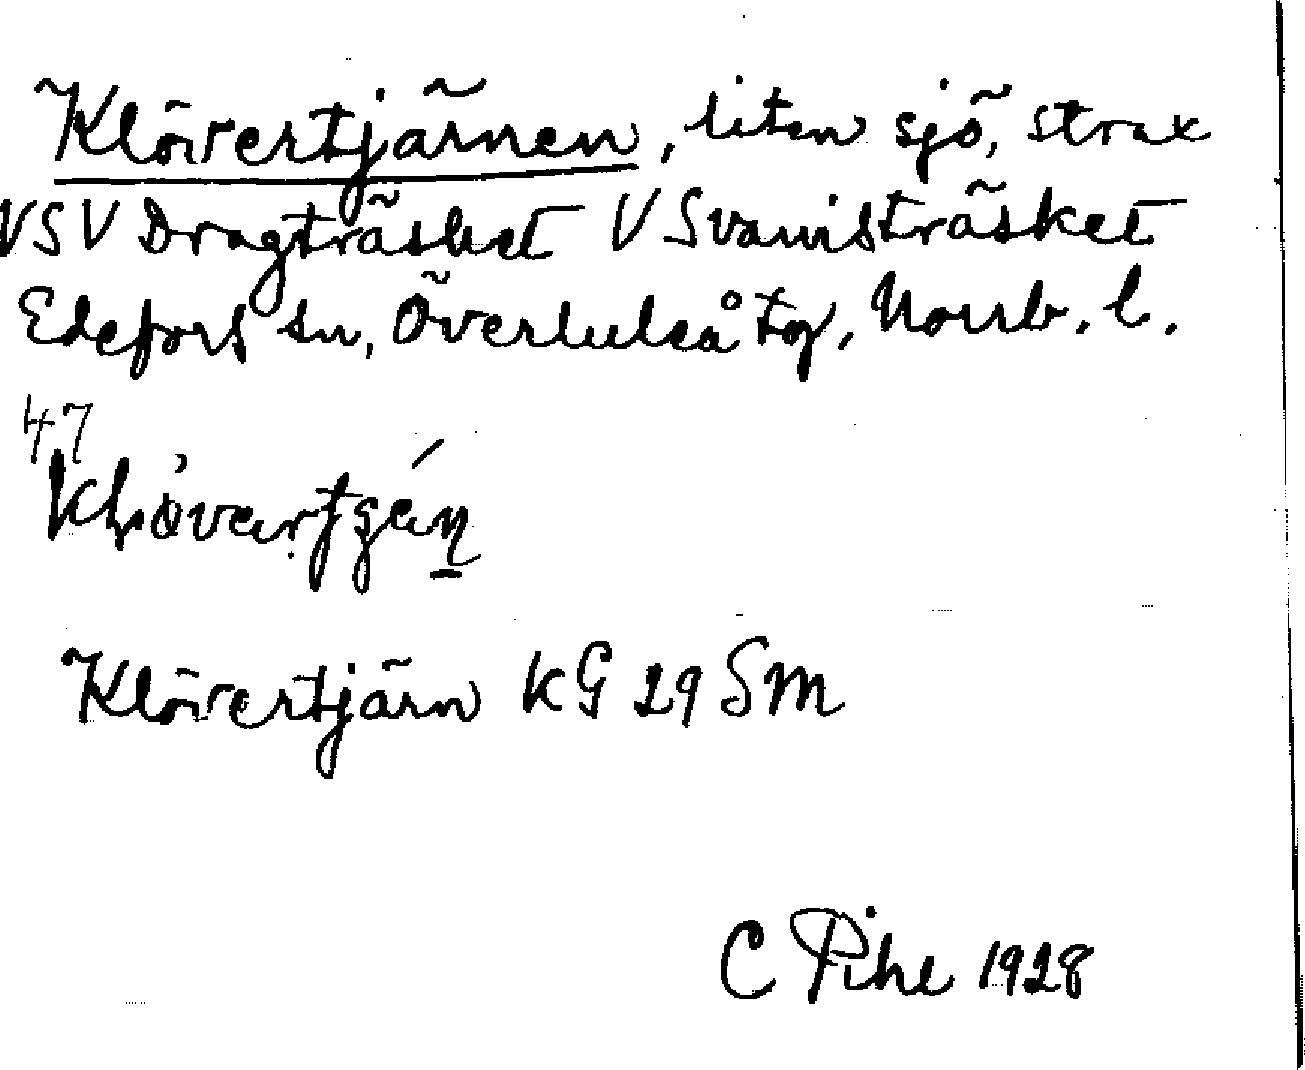 Klövertjärnen, liten sjö, strax
VSV Dragträsket V Svanisträsket
Edefors sn, Överluleå tg, Norrb. l.
47
Klövertjärn KG 29 SM
C Pihl 1928